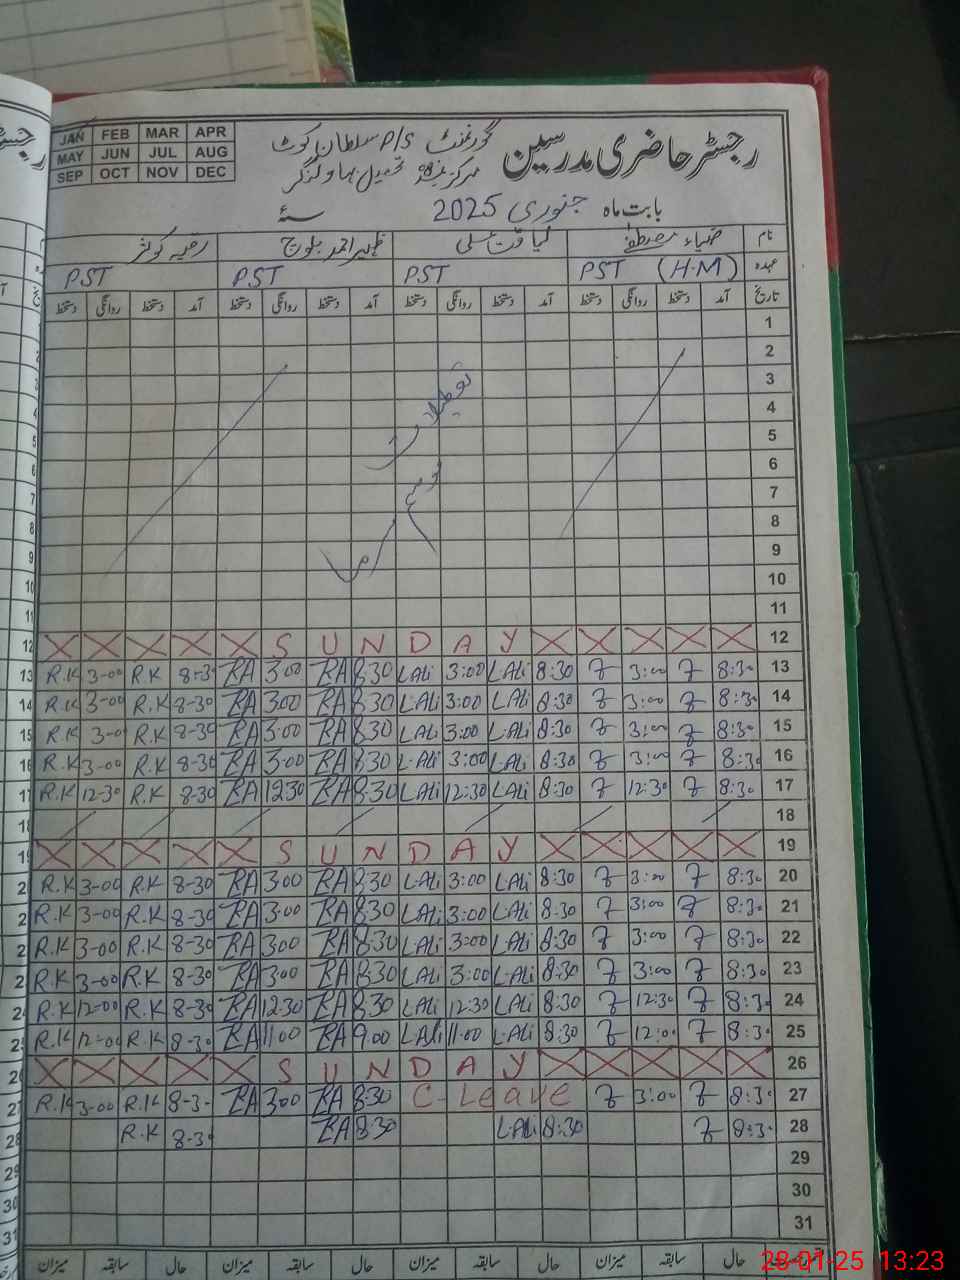 JAN FEB MAR APR
MAY JUN JUL AUG
SEP OCT NOV DEC
رجسٹر حاضری مدرسین گورنمنٹ P/S سلطان کوٹ
مرکز تحصیل بہاولنگر
بابت ماہ جنوری 2025 سنہ
نام ضیاء مصطفیٰ لیاقت علی ظہیر احمد بلوچ رقیہ کوثر
عہدہ PST (H.M) PST PST PST
تاریخ آمد دستخط روانگی دستخط آمد دستخط روانگی دستخط آمد دستخط روانگی دستخط آمد دستخط روانگی دستخط
1
2
3
4
5
6
7
8
9
10
11
تعطیلات
موسم
سرما
X X X X X S U N D A Y X X X X X 12
R.K 3-00 R.K 8-30 ZA 3:00 ZA 8:30 L.Ali 3:00 L.Ali 8:30 Z 3:00 Z 8:30 13
R.K 3-00 R.K 8-30 ZA 3:00 ZA 8:30 L.Ali 3:00 L.Ali 8:30 Z 3:00 Z 8:30 14
R.K 3-00 R.K 8-30 ZA 3:00 ZA 8:30 L.Ali 3:00 L.Ali 8:30 Z 3:00 Z 8:30 15
R.K 3-00 R.K 8-30 ZA 3:00 ZA 8:30 L.Ali 3:00 L.Ali 8:30 Z 3:00 Z 8:30 16
R.K 12-30 R.K 8-30 ZA 12:30 ZA 8:30 L.Ali 12:30 L.Ali 8:30 Z 12:30 Z 8:30 17
18
X X X X X S U N D A Y X X X X X 19
R.K 3-00 R.K 8-30 ZA 3:00 ZA 8:30 L.Ali 3:00 L.Ali 8:30 Z 3:00 Z 8:30 20
R.K 3-00 R.K 8-30 ZA 3:00 ZA 8:30 L.Ali 3:00 L.Ali 8:30 Z 3:00 Z 8:30 21
R.K 3-00 R.K 8-30 ZA 3:00 ZA 8:30 L.Ali 3:00 L.Ali 8:30 Z 3:00 Z 8:30 22
R.K 3-00 R.K 8-30 ZA 3:00 ZA 8:30 L.Ali 3:00 L.Ali 8:30 Z 3:00 Z 8:30 23
R.K 12-00 R.K 8-30 ZA 12:30 ZA 8:30 L.Ali 12:30 L.Ali 8:30 Z 12:30 Z 8:30 24
R.K 12-00 R.K 8-30 ZA 11:00 ZA 9:00 L.Ali 11:00 L.Ali 8:30 Z 12:00 Z 8:30 25
X X X X X S U N D A Y X X X X X 26
R.K 3-00 R.K 8-30 ZA 3:00 ZA 8:30 C-Leave Z 3:00 Z 8:30 27
R.K 8-30 ZA 8:30 L.Ali 8:30 Z 8:30 28
29
30
31
حال سابقہ میزان حال سابقہ میزان حال سابقہ میزان حال سابقہ میزان
28-01-25 13:23